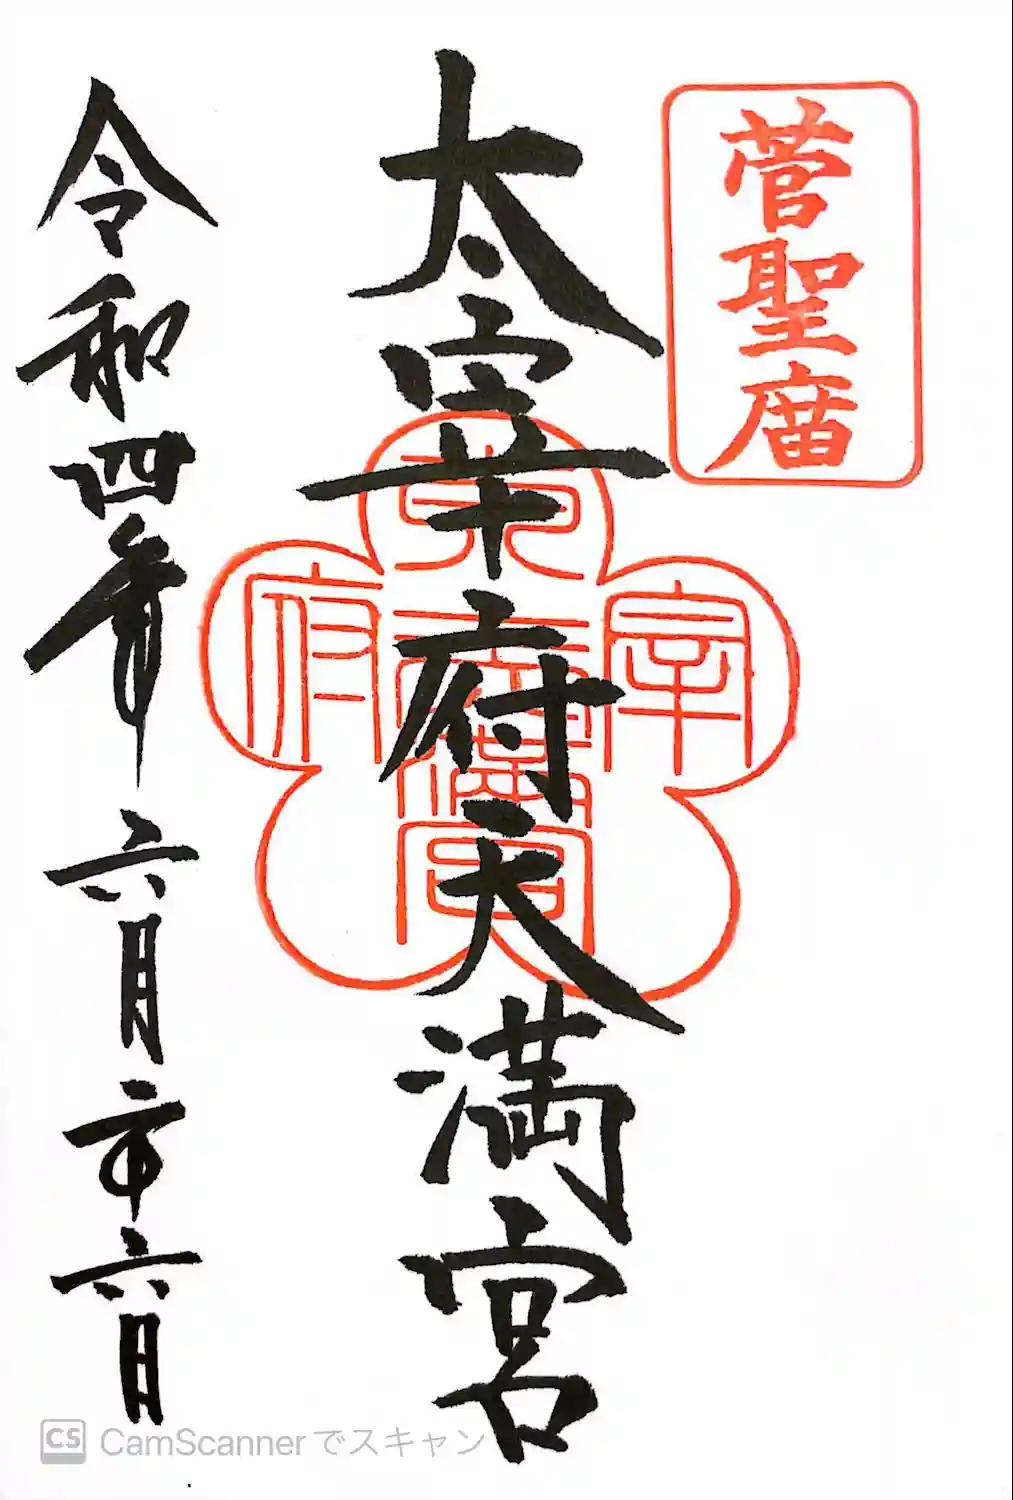 菅聖庿
太宰府天満宮
太宰府天満宮
令和四年六月二十六日
CS CamScannerでスキャン